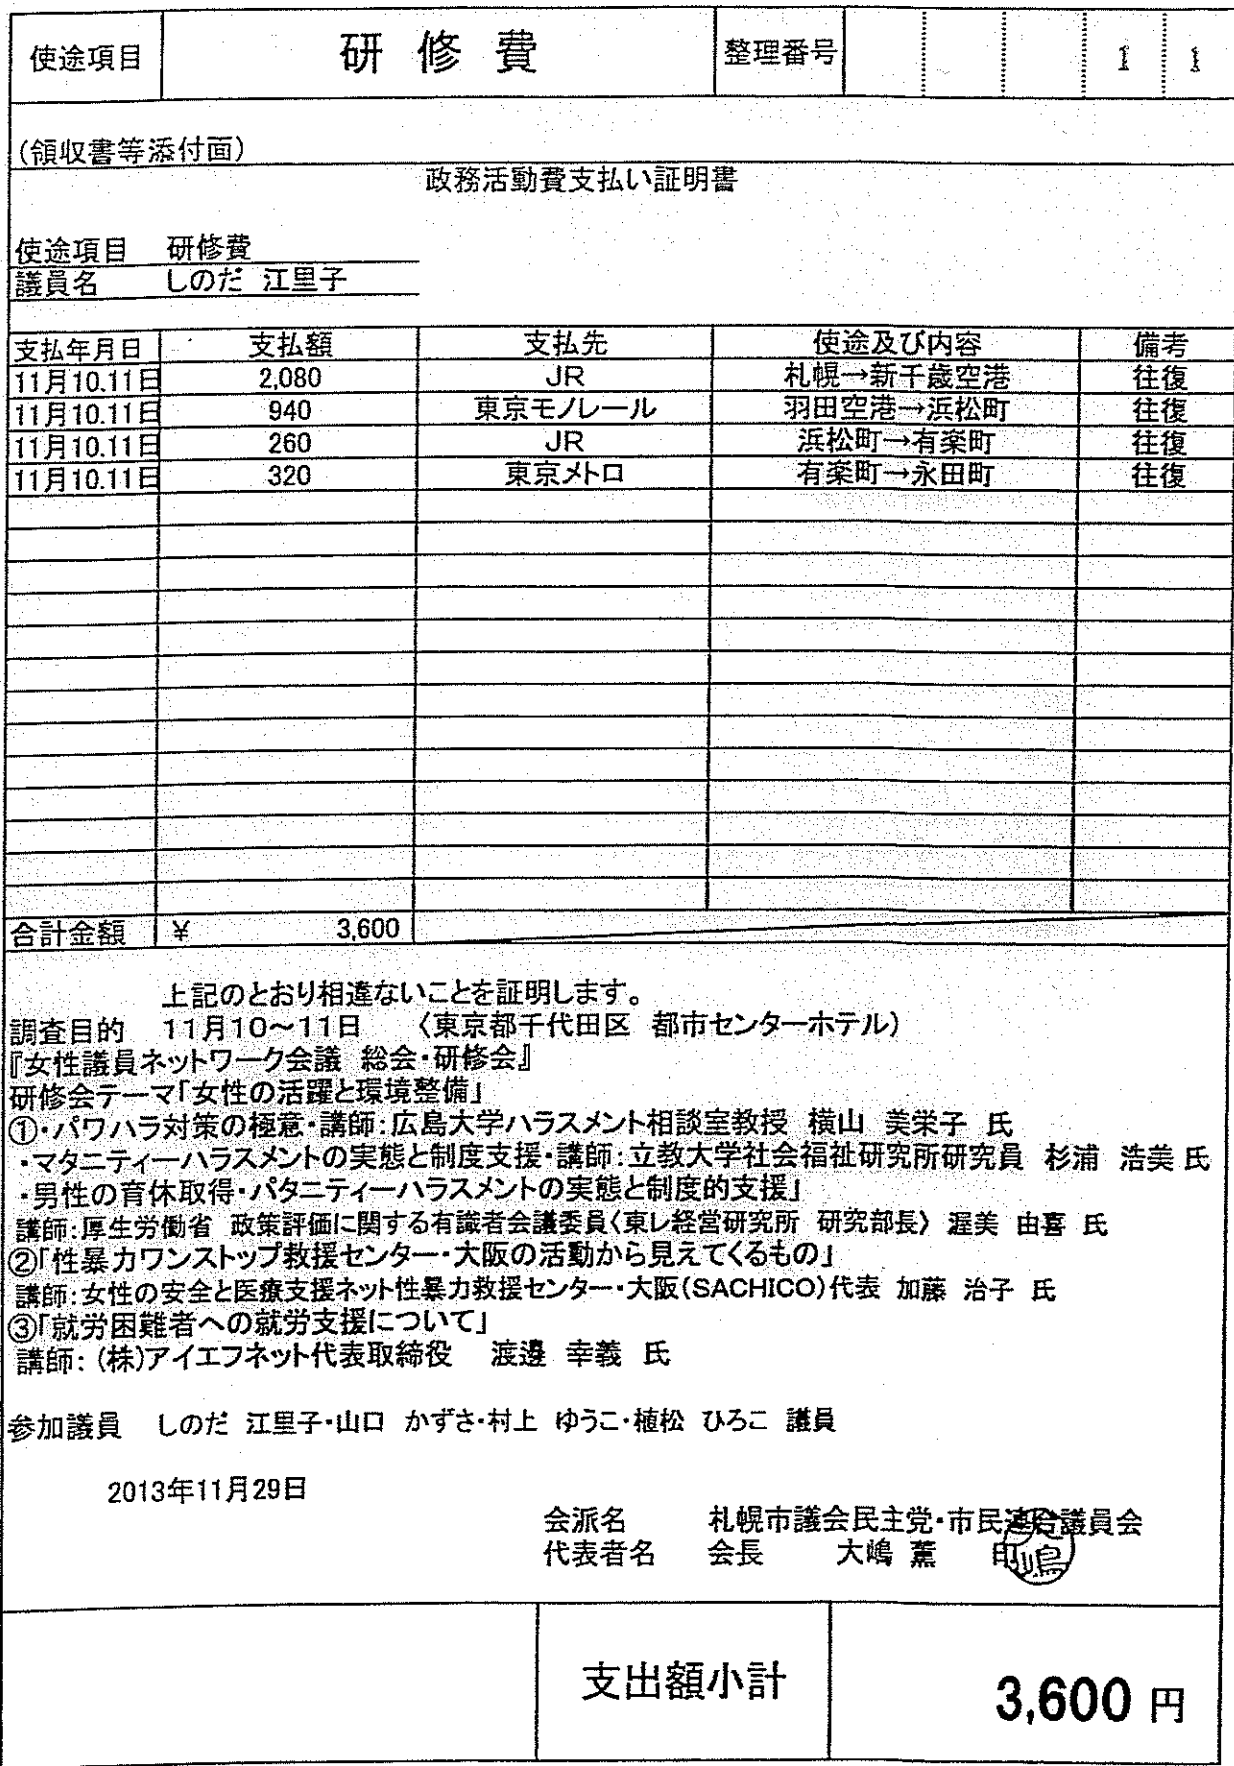 使途項目 研修費 整理番号 1 1
(領収書等添付面)
政務活動費支払い証明書
使途項目 研修費
議員名 しのだ 江里子
支払年月日 支払額 支払先 使途及び内容 備考
11月10.11日 2,080 JR 札幌→新千歳空港 往復
11月10.11日 940 東京モノレール 羽田空港→浜松町 往復
11月10.11日 260 JR 浜松町→有楽町 往復
11月10.11日 320 東京メトロ 有楽町→永田町 往復
合計金額 ¥ 3,600
上記のとおり相違ないことを証明します。
調査目的 11月10～11日 〈東京都千代田区 都市センターホテル〉
『女性議員ネットワーク会議 総会・研修会』
研修会テーマ「女性の活躍と環境整備」
①・パワハラ対策の極意・講師：広島大学ハラスメント相談室教授 横山 美栄子 氏
・マタニティーハラスメントの実態と制度支援・講師：立教大学社会福祉研究所研究員 杉浦 浩美 氏
・男性の育休取得・パタニティーハラスメントの実態と制度的支援」
講師：厚生労働省 政策評価に関する有識者会議委員〈東レ経営研究所 研究部長〉 渥美 由喜 氏
②「性暴力ワンストップ救援センター・大阪の活動から見えてくるもの」
講師：女性の安全と医療支援ネット性暴力救援センター・大阪(SACHICO)代表 加藤 治子 氏
③「就労困難者への就労支援について」
講師：(株)アイエフネット代表取締役 渡邊 幸義 氏
参加議員 しのだ 江里子・山口 かずさ・村上 ゆうこ・植松 ひろこ 議員
2013年11月29日
会派名 札幌市議会民主党・市民連合議員会
代表者名 会長 大嶋 薫 印
支出額小計 3,600 円